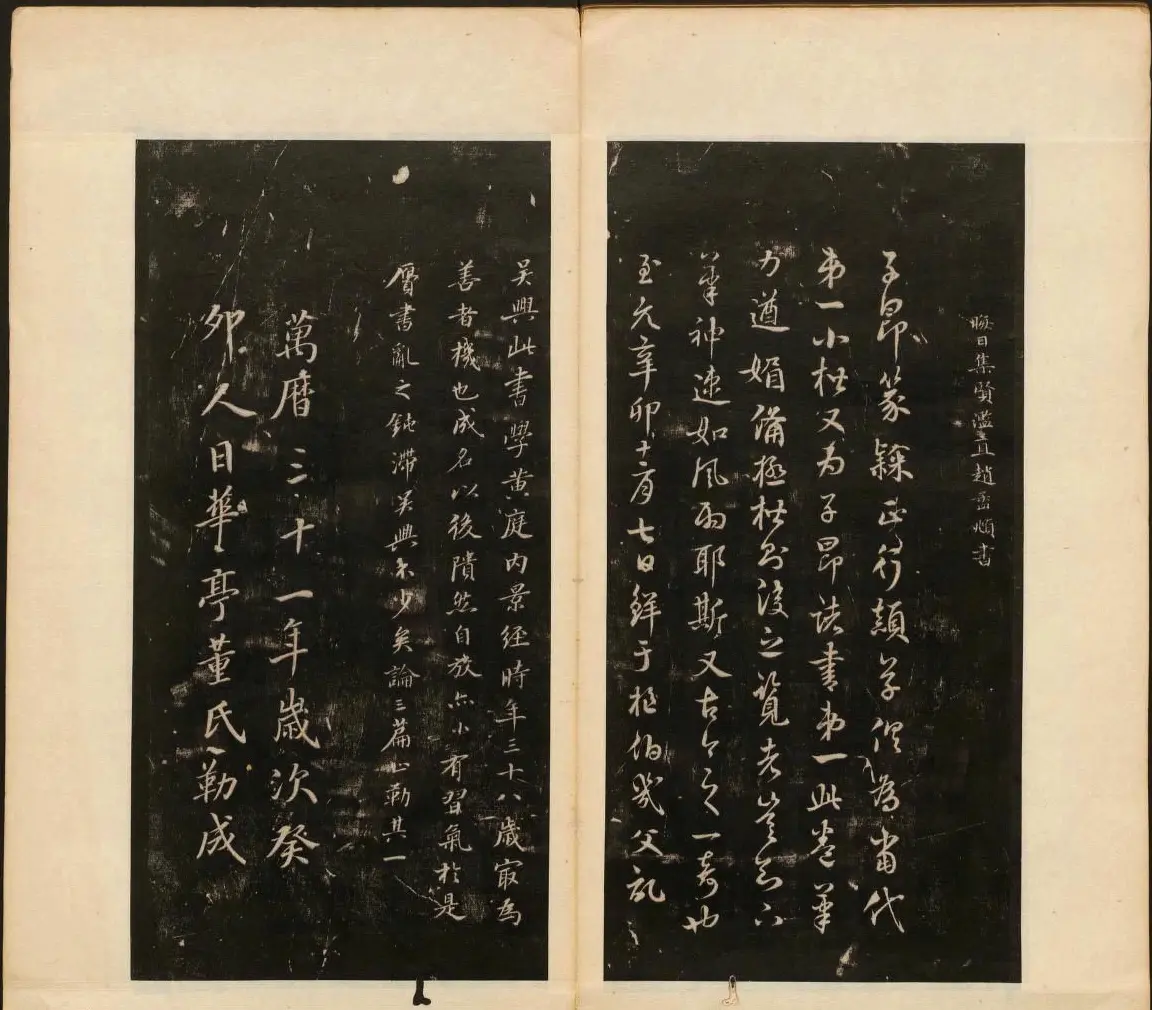 晦日集賢濫直趙孟頫書
子昂篆隸正行顛草俱為當代
第一小楷又為子昂諸書第一此卷筆
力遒媚備極楷則後之覽者豈知下
筆神速如風雨耶斯又古今之一奇也
至元辛卯十二月七日鮮于樞伯幾父記
吳興此書學黃庭內景經時年三十八歲㝡為
善者機也成名以後隤然自放亦小有習氣於是
贗書亂之鈍滯吳興不少矣論三篇止勒其一
萬曆三十一年歲次癸
卯人日華亭董氏勒成